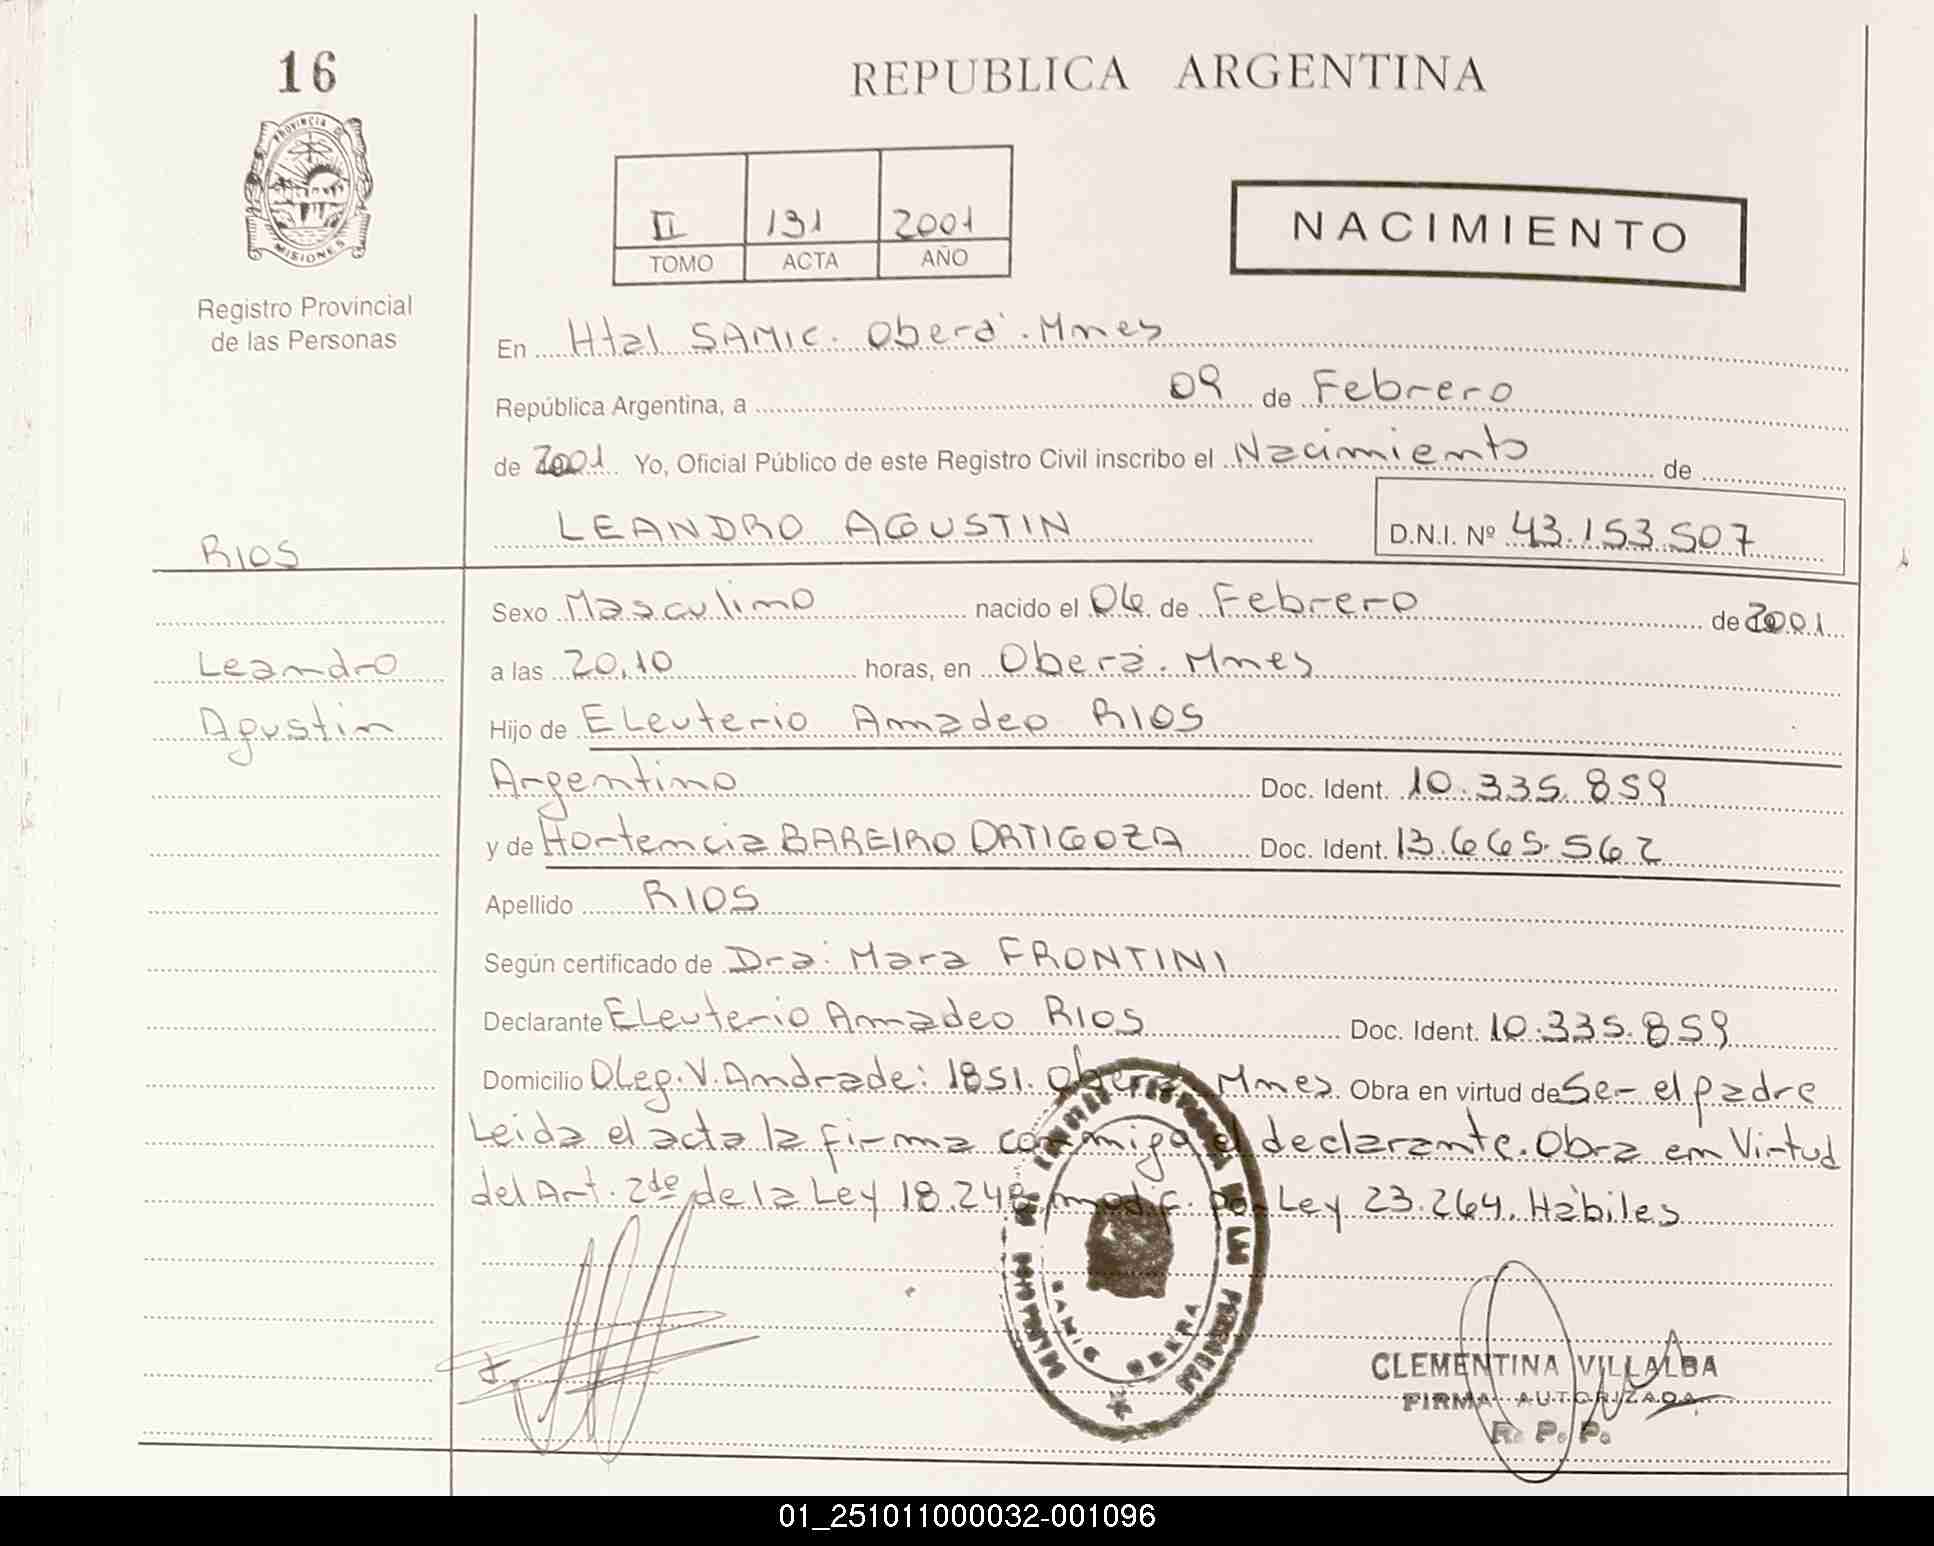 16
PROVINCIA DE
MISIONES
Registro Provincial
de las Personas
REPUBLICA ARGENTINA
II 131 2001
TOMO ACTA AÑO
NACIMIENTO
En Htal SAMIC. Oberá. Mnes
República Argentina, a 09 de Febrero
de 2001 Yo, Oficial Público de este Registro Civil inscribo el Nacimiento de
LEANDRO AGUSTIN D.N.I. Nº 43.153.507
RIOS
Leandro
Agustin
Sexo Masculino nacido el 06 de Febrero de 2001
a las 20,10 horas, en Oberá. Mnes
Hijo de Eleuterio Amadeo RIOS
Argentino Doc. Ident. 10.335.859
y de Hortencia BAREIRO ORTIGOZA Doc. Ident. 13.665.562
Apellido RIOS
Según certificado de Dra: Mara FRONTINI
Declarante Eleuterio Amadeo RIOS Doc. Ident. 10.335.859
Domicilio Oleg. V. Andrade: 1851. Oberá Mnes. Obra en virtud de Ser el padre
Leida el acta la firma conmigo el declarante. Obra en Virtud
del Art. 2do de la Ley 18.248 modif. por Ley 23.264. Hábiles
OBERA
CLEMENTINA VILLALBA
FIRMA AUTORIZADA
R. P. P.
01_251011000032-001096